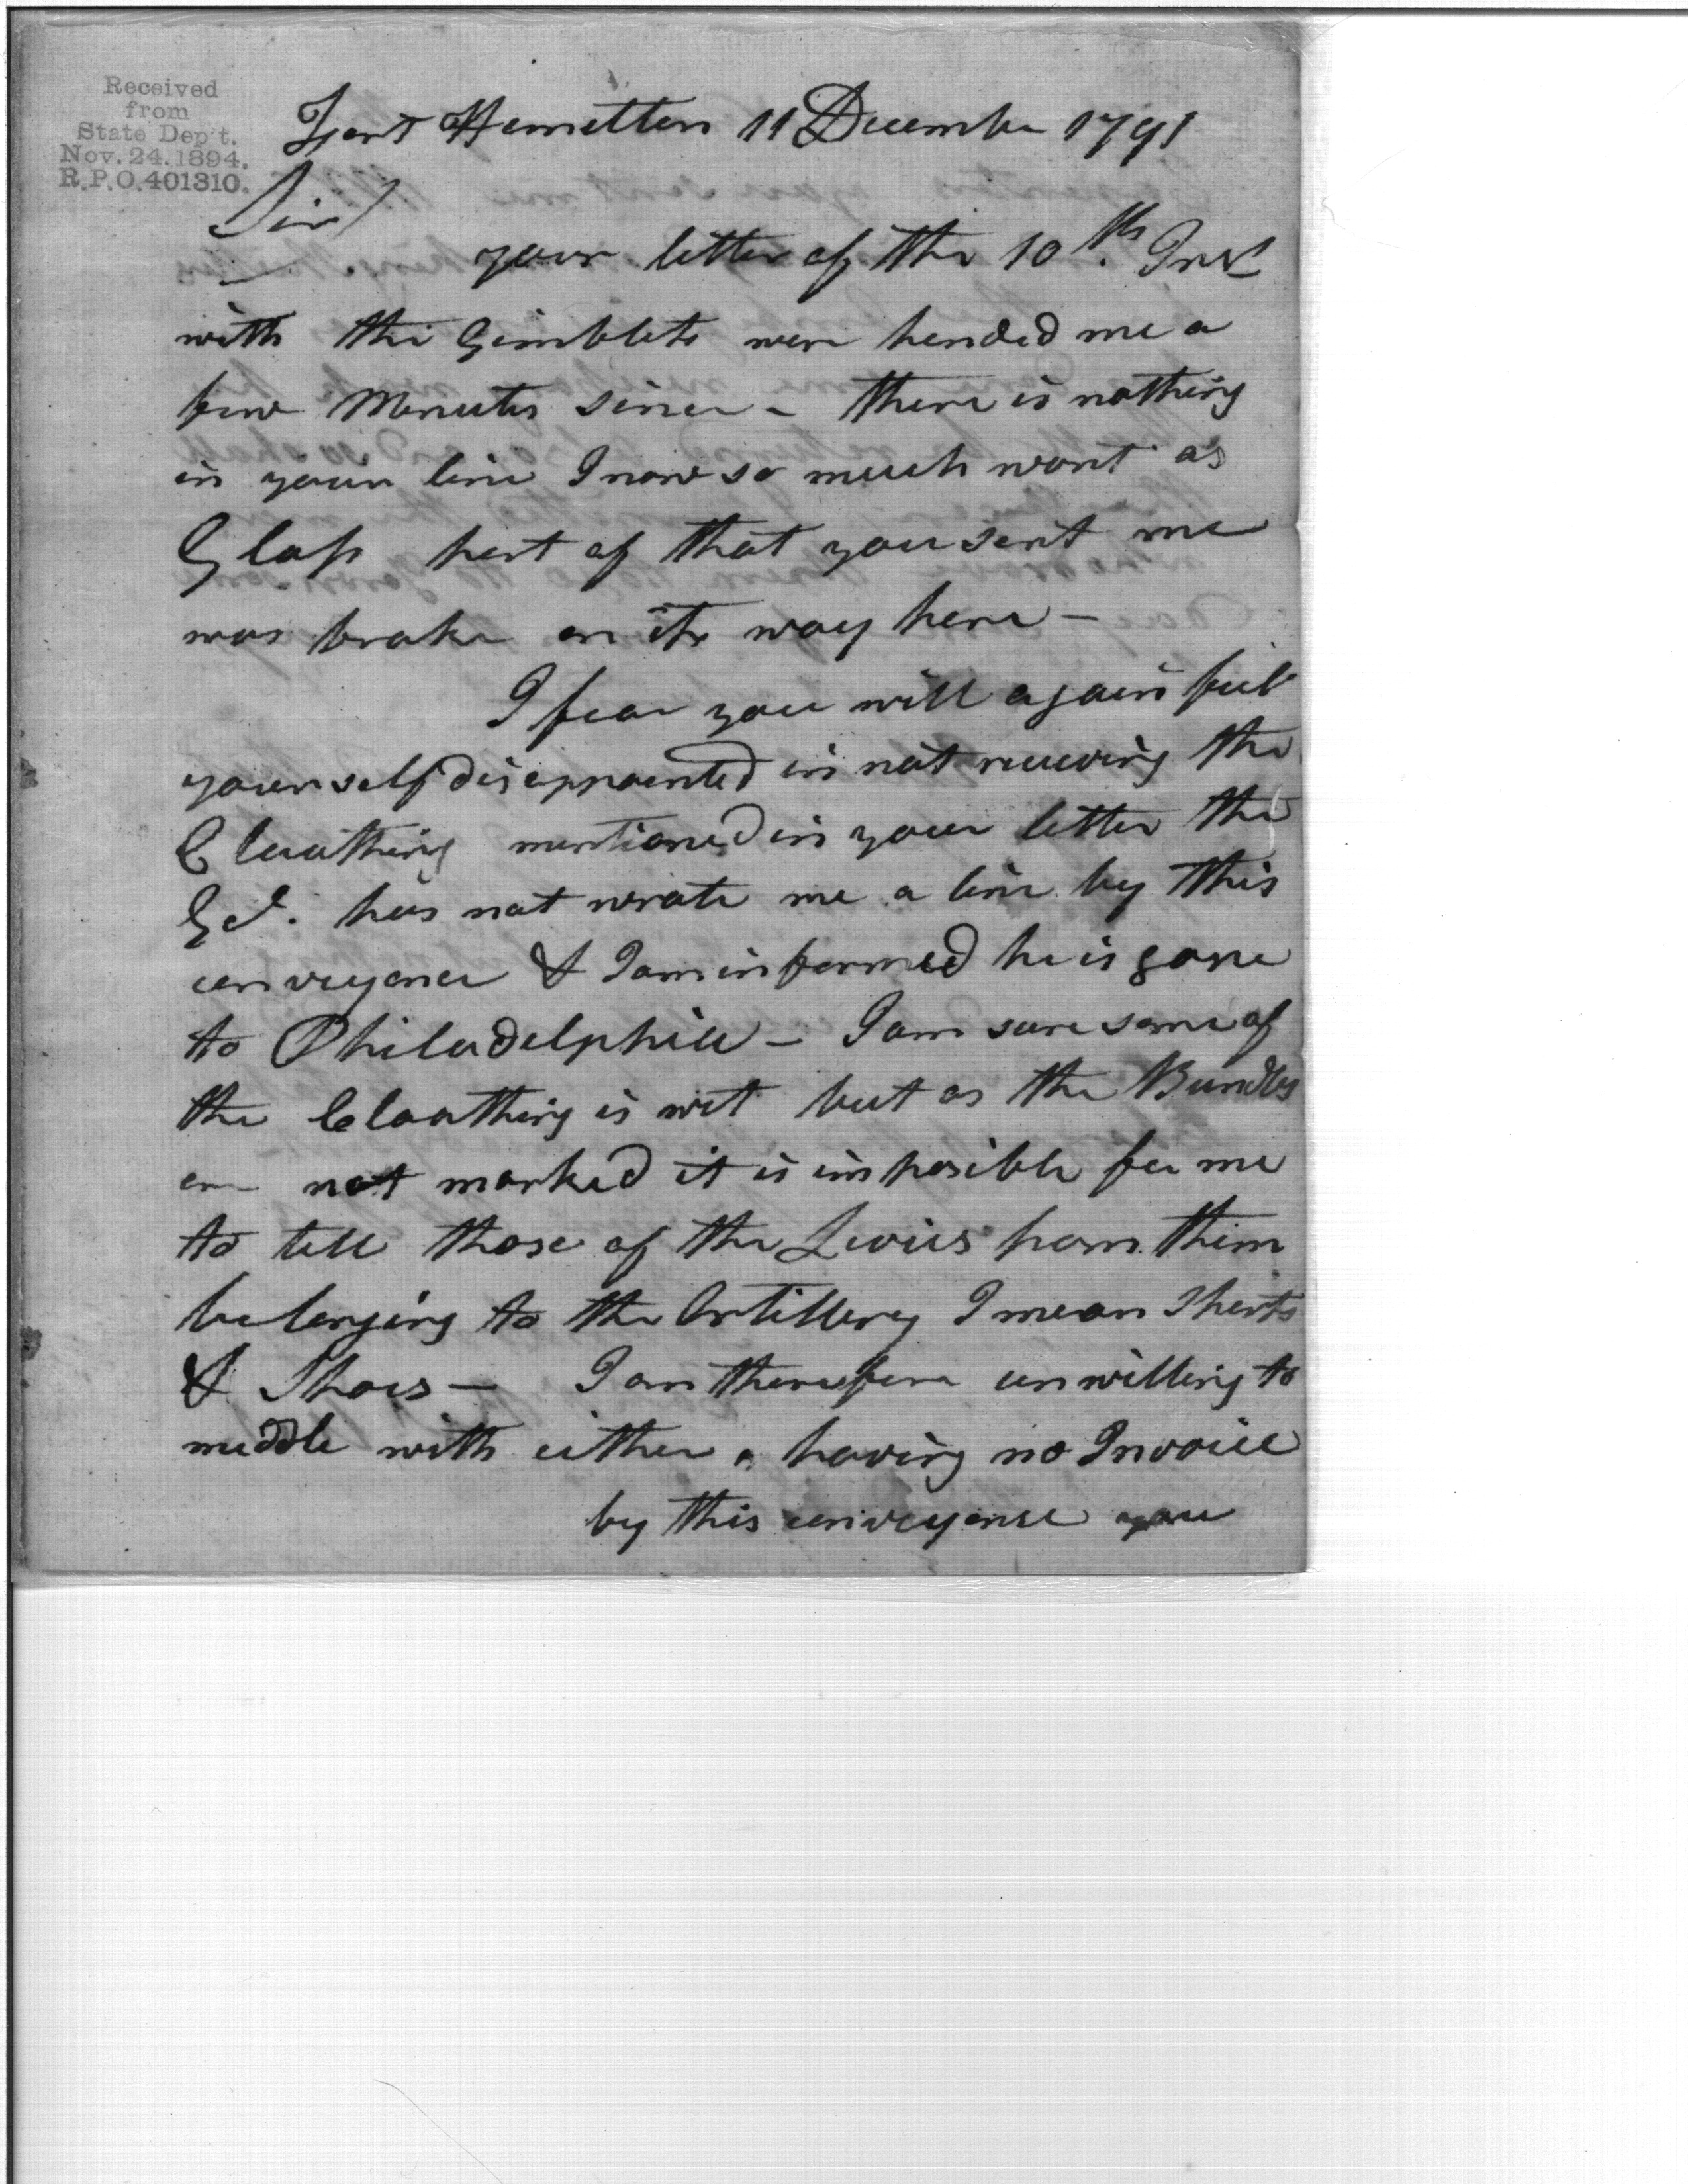 Received
from
State Dep't.
Nov. 24. 1894.
R.P.O. 401310.
Fort Hamilton 11 December 1791
Sir/
your letter of the 10th. Inst
with the Gimblets were handed me a
few Minutes since - there is nothing
in your line I now so much want as
Glass part of that you sent me
was broke on its way here -
I fear you will again feel
yourself disappointed in not receiving the
Cloathing mentioned in your letter the
has not wrote me a line by this
conveyance & I am informed he is gone
to Philadelphia - I am sure some of
the Cloathing is wet but as the Bundles
are not marked it is imposible for me
to tell those of the Levies from them
belonging to the Artillery I mean Sherts
& Shoes - I am therefore unwilling to
meddle with either, having no Invoice
by this conveyance you